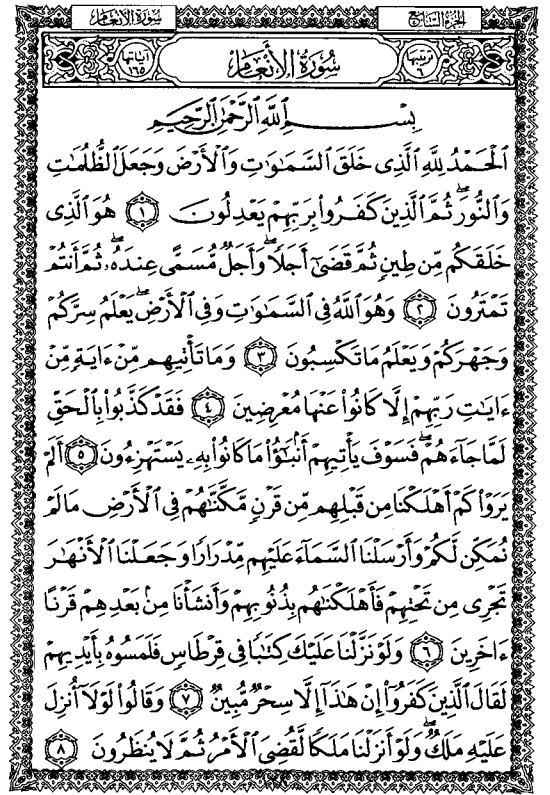 الجزء السابع
سورة الأنعام
ترتيبها ٦
سورة الأنعام
آياتها ١٦٥
بِسْمِ اللَّهِ الرَّحْمَٰنِ الرَّحِيمِ
الْحَمْدُ لِلَّهِ الَّذِى خَلَقَ السَّمَٰوَٰتِ وَالْأَرْضَ وَجَعَلَ الظُّلُمَٰتِ
وَالنُّورَ ۖ ثُمَّ الَّذِينَ كَفَرُوا۟ بِرَبِّهِمْ يَعْدِلُونَ ١ هُوَ الَّذِى
خَلَقَكُم مِّن طِينٍ ثُمَّ قَضَىٰٓ أَجَلًا ۖ وَأَجَلٌ مُّسَمًّى عِندَهُۥ ۖ ثُمَّ أَنتُمْ
تَمْتَرُونَ ٢ وَهُوَ اللَّهُ فِى السَّمَٰوَٰتِ وَفِى الْأَرْضِ ۖ يَعْلَمُ سِرَّكُمْ
وَجَهْرَكُمْ وَيَعْلَمُ مَا تَكْسِبُونَ ٣ وَمَا تَأْتِيهِم مِّنْ ءَايَةٍ مِّنْ
ءَايَٰتِ رَبِّهِمْ إِلَّا كَانُوا۟ عَنْهَا مُعْرِضِينَ ٤ فَقَدْ كَذَّبُوا۟ بِالْحَقِّ
لَمَّا جَآءَهُمْ ۖ فَسَوْفَ يَأْتِيهِمْ أَنۢبَٰٓؤُا۟ مَا كَانُوا۟ بِهِۦ يَسْتَهْزِءُونَ ٥ أَلَمْ
يَرَوْا۟ كَمْ أَهْلَكْنَا مِن قَبْلِهِم مِّن قَرْنٍ مَّكَّنَّٰهُمْ فِى الْأَرْضِ مَا لَمْ
نُمَكِّن لَّكُمْ وَأَرْسَلْنَا السَّمَآءَ عَلَيْهِم مِّدْرَارًا وَجَعَلْنَا الْأَنْهَٰرَ
تَجْرِى مِن تَحْتِهِمْ فَأَهْلَكْنَٰهُم بِذُنُوبِهِمْ وَأَنشَأْنَا مِنۢ بَعْدِهِمْ قَرْنًا
ءَاخَرِينَ ٦ وَلَوْ نَزَّلْنَا عَلَيْكَ كِتَٰبًا فِى قِرْطَاسٍ فَلَمَسُوهُ بِأَيْدِيهِمْ
لَقَالَ الَّذِينَ كَفَرُوٓا۟ إِنْ هَٰذَآ إِلَّا سِحْرٌ مُّبِينٌ ٧ وَقَالُوا۟ لَوْلَآ أُنزِلَ
عَلَيْهِ مَلَكٌ ۖ وَلَوْ أَنزَلْنَا مَلَكًا لَّقُضِىَ الْأَمْرُ ثُمَّ لَا يُنظَرُونَ ٨